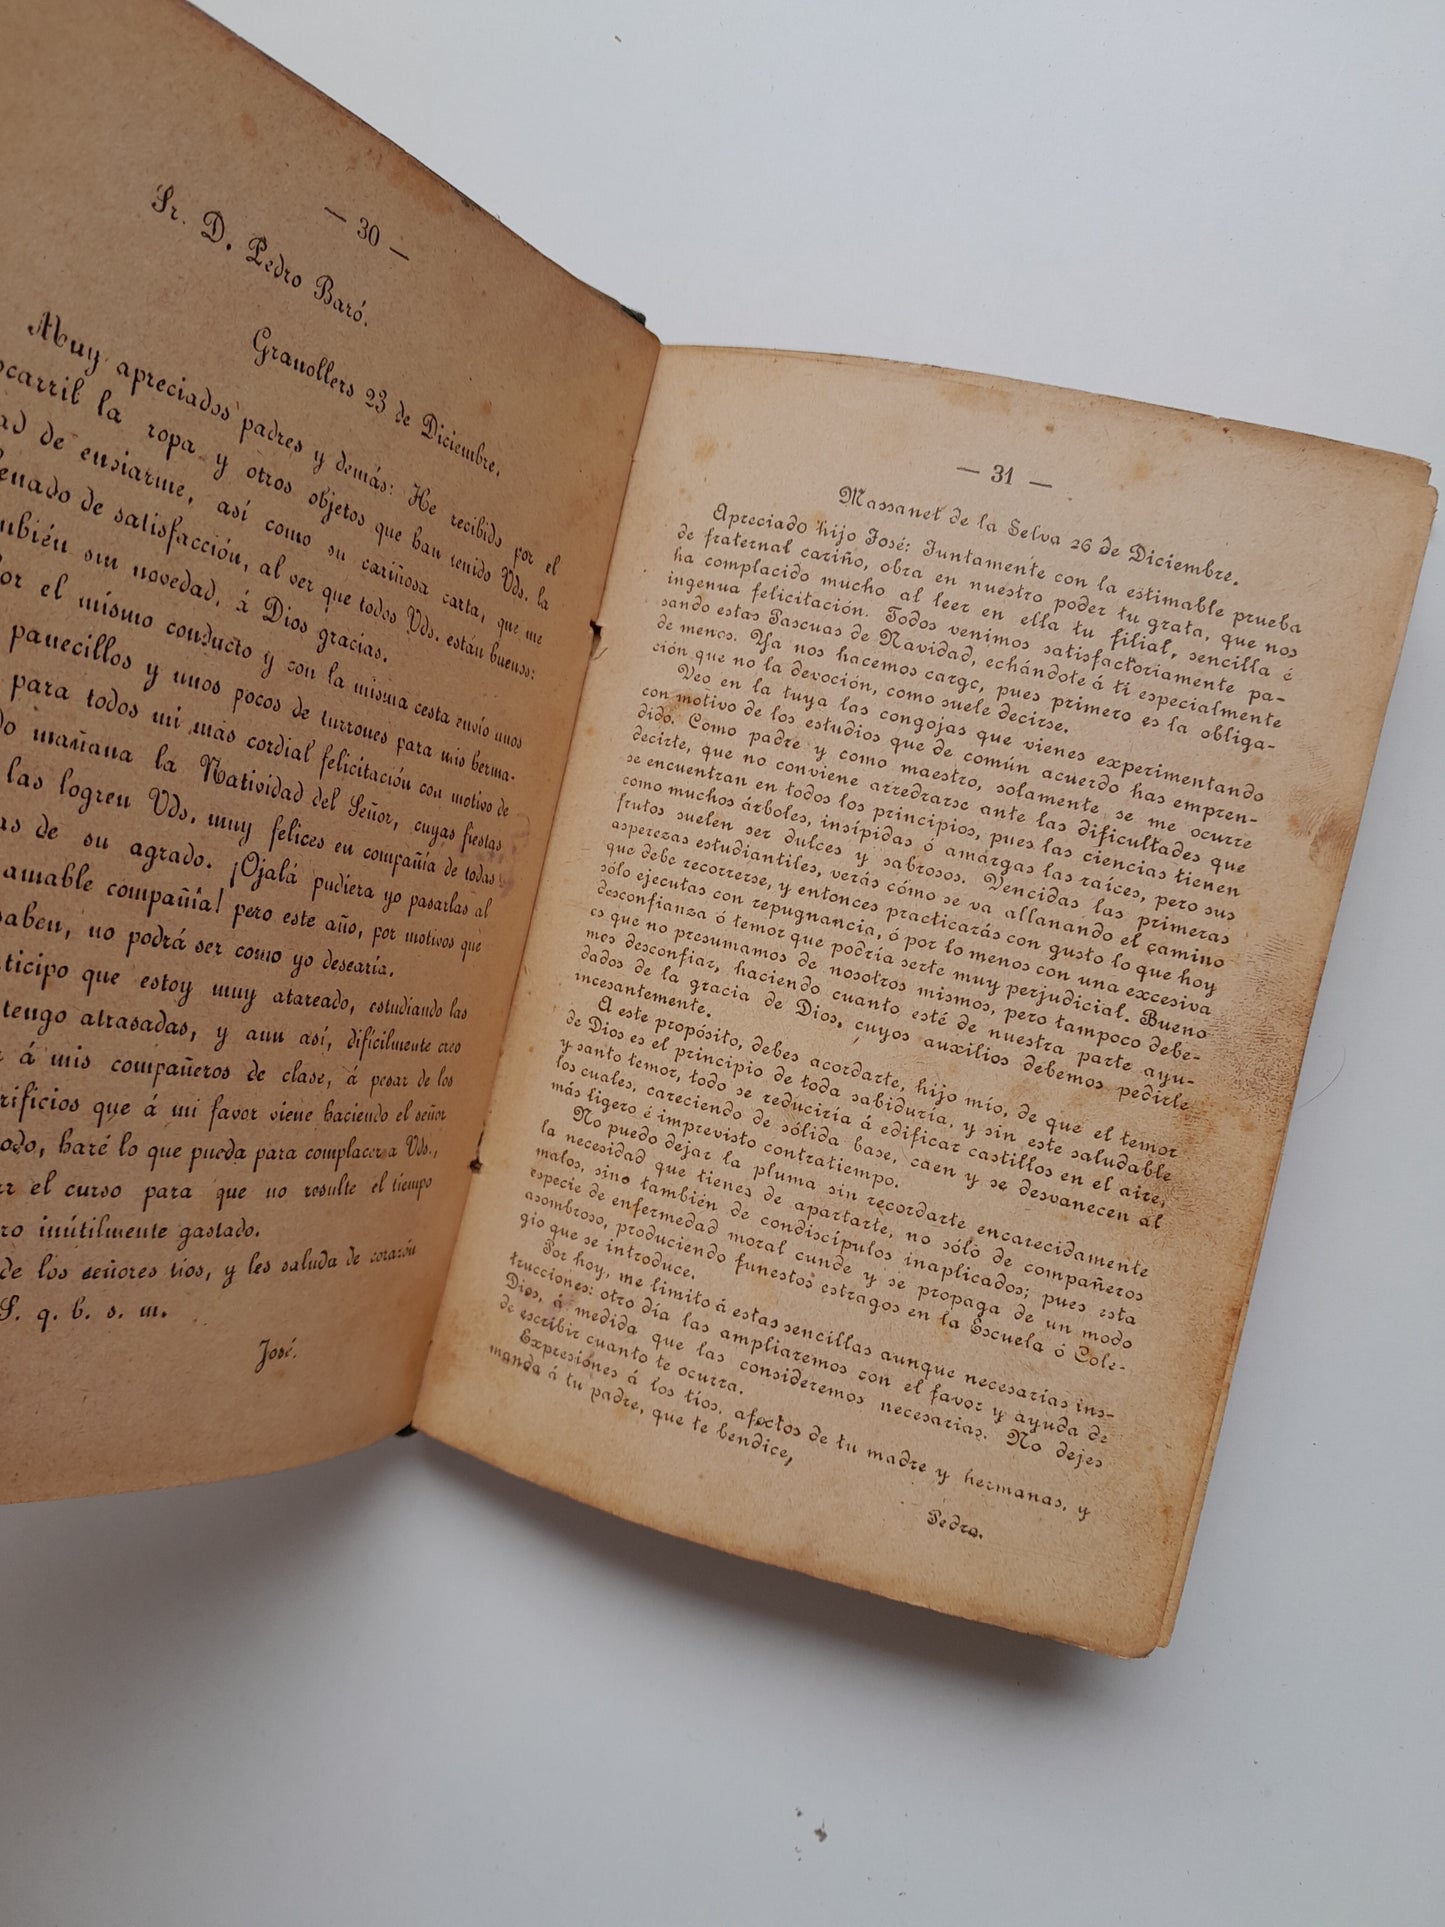 — 30 —
Sr. D. Pedro Baró.
Granollers 23 de Diciembre.
Muy apreciados padres y demás: He recibido por el
ocarril la ropa y otros objetos que han tenido Vds. la
ad de enviarme, así como su cariñosa carta, que me
lenado de satisfacción, al ver que todos Vds. están buenos:
mbién sin novedad, á Dios gracias.
or el mismo conducto y con la misma cesta envío unos
panecillos y unos pocos de turrones para mis herma-
para todos mi más cordial felicitación con motivo de
do mañana la Natividad del Señor, cuyas fiestas
las logren Vds. muy felices en compañía de todas
as de su agrado. ¡Ojalá pudiera yo pasarlas al
amable compañía! pero este año, por motivos que
saben, no podrá ser como yo desearía.
ticipo que estoy muy atareado, estudiando las
tengo atrasadas, y aun así, difícilmente creo
r á mis compañeros de clase, á pesar de los
rificios que á mi favor viene haciendo el señor
odo, haré lo que pueda para complacer a Vds.,
rr el curso para que no resulte el tiempo
ro inútilmente gastado.
de los señores tíos, y les saluda de corazón
S. q. b. s. m.
José.
— 31 —
Massanet de la Selva 26 de Diciembre.
Apreciado hijo José: Juntamente con la estimable prueba
de fraternal cariño, obra en nuestro poder tu grata, que nos
ha complacido mucho al leer en ella tu filial, sencilla é
ingenua felicitación. Todos venimos satisfactoriamente pa-
sando estas Pascuas de Navidad, echándote á ti especialmente
de menos. Ya nos hacemos cargo, pues primero es la obliga-
ción que no la devoción, como suele decirse.
Veo en la tuya las congojas que vienes experimentando
con motivo de los estudios que de común acuerdo has empren-
dido. Como padre y como maestro, solamente se me ocurre
decirte, que no conviene arredrarse ante las dificultades que
se encuentran en todos los principios, pues las ciencias tienen
como muchos árboles, insípidas ó amargas las raíces, pero sus
frutos suelen ser dulces y sabrosos. Vencidas las primeras
asperezas estudiantiles, verás cómo se va allanando el camino
que debe recorrerse, y entonces practicarás con gusto lo que hoy
sólo ejecutas con repugnancia, ó por lo menos con una excesiva
desconfianza ó temor que podría serte muy perjudicial. Bueno
es que no presumamos de nosotros mismos, pero tampoco debe-
mos desconfiar, haciendo cuanto esté de nuestra parte ayu-
dados de la gracia de Dios, cuyos auxilios debemos pedirle
incesantemente.
A este propósito, debes acordarte, hijo mío, de que el temor
de Dios es el principio de toda sabiduría, y sin este saludable
y santo temor, todo se reduciría á edificar castillos en el aire,
los cuales, careciendo de sólida base, caen y se desvanecen al
más ligero é imprevisto contratiempo.
No puedo dejar la pluma sin recordarte encarecidamente
la necesidad que tienes de apartarte, no sólo de compañeros
malos, sino también de condiscípulos inaplicados; pues esta
especie de enfermedad moral cunde y se propaga de un modo
asombroso, produciendo funestos estragos en la Escuela ó Cole-
gio que se introduce.
Por hoy, me limito á estas sencillas aunque necesarias ins-
trucciones: otro día las ampliaremos con el favor y ayuda de
Dios, á medida que las consideremos necesarias. No dejes
de escribir cuanto te ocurra.
Expresiones á los tíos, afectos de tu madre y hermanas, y
manda á tu padre, que te bendice,
Pedro.